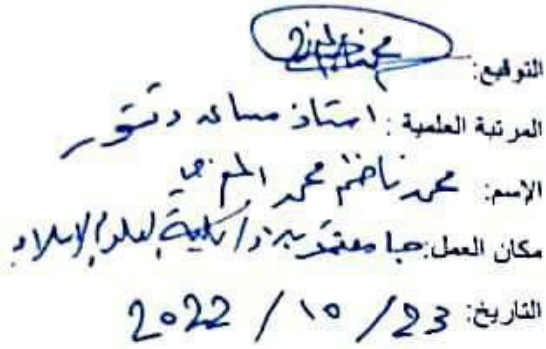 التوقيع:
المرتبة العلمية: استاذ مساعد دكتور
الإسم: محمد ناظم محمد
مكان العمل: جامعة / كلية العلوم الإسلامية
التاريخ: 23 / 10 / 2022